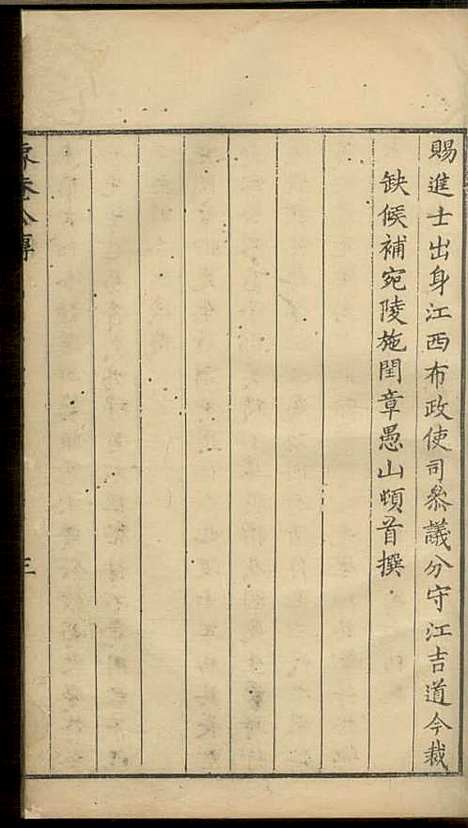 賜進士出身江西布政使司叅議分守江吉道今裁
缺候補宛陵施閏章愚山頓首撰
三